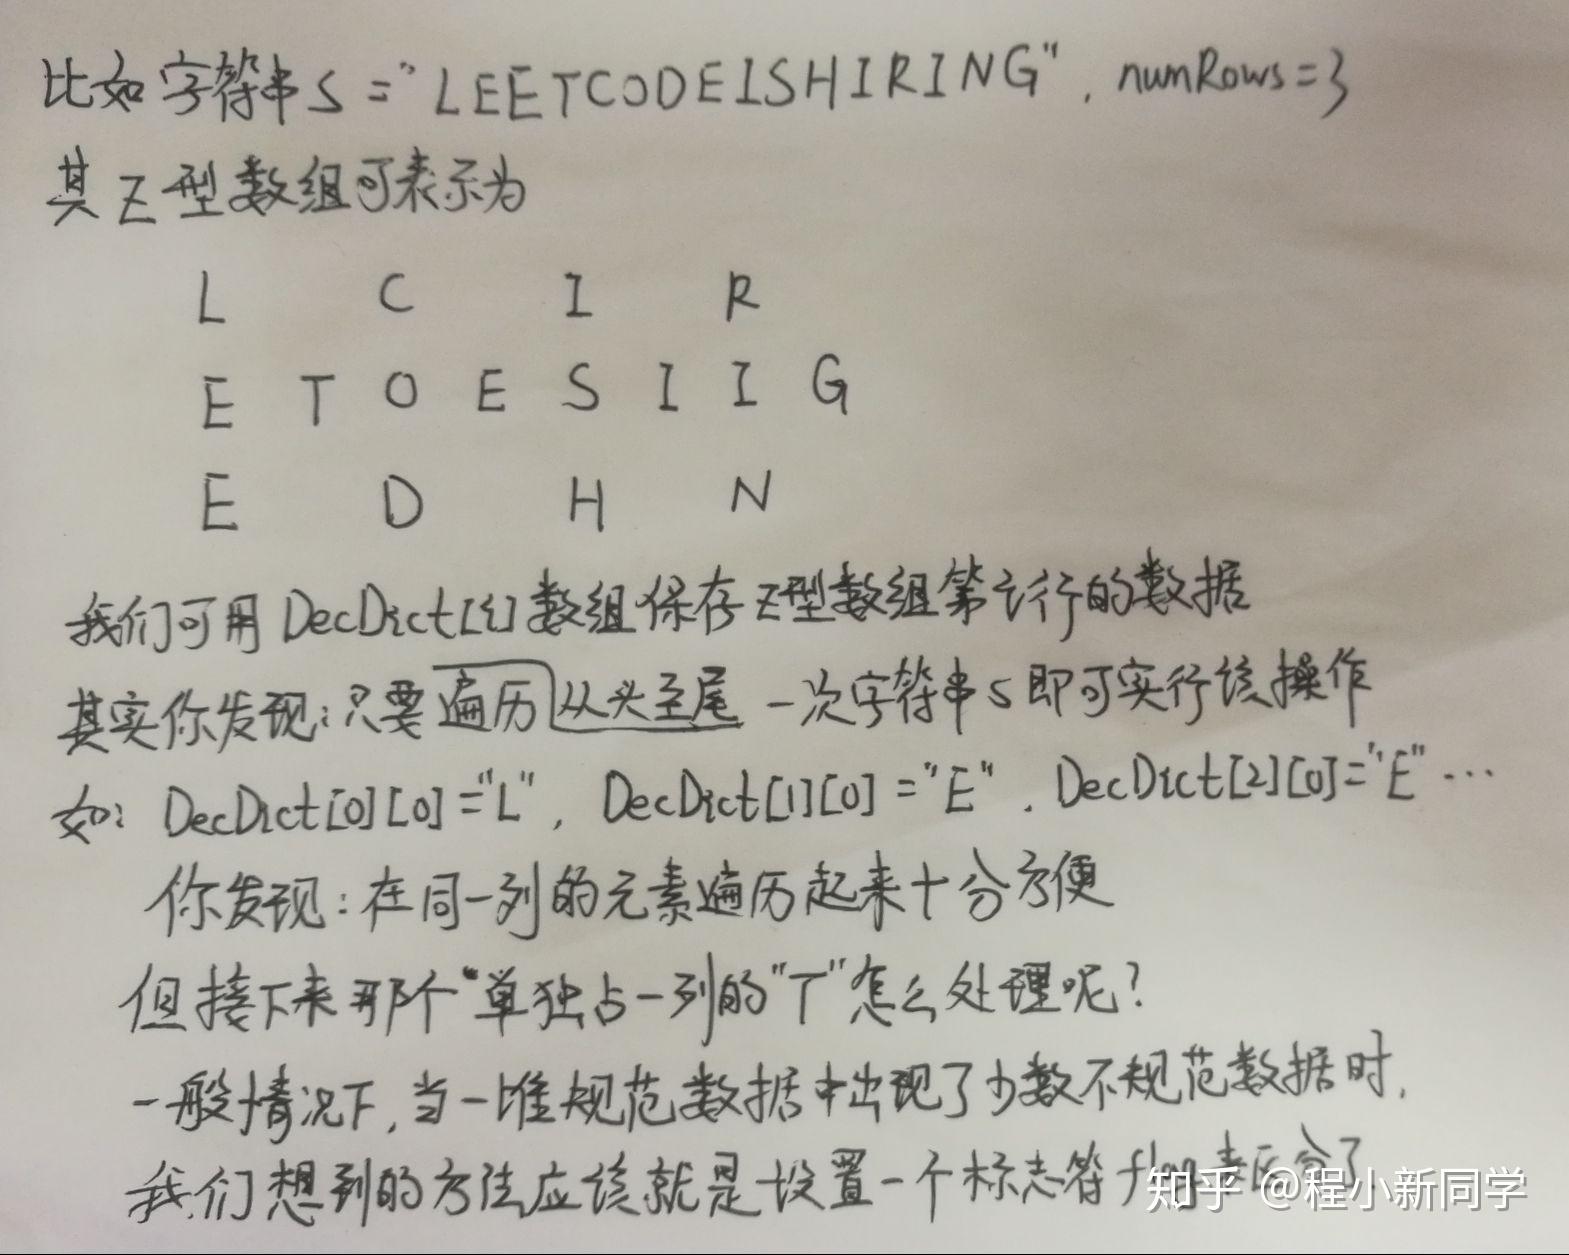 比如字符串S="LEETCODEISHIRING", numRows=3
其Z型数组可表示为
L C I R
E T O E S I I G
E D H N
我们可用DecDict[i]数组保存Z型数组第i行的数据
其实你发现:只要遍历从头至尾一次字符串S即可实行该操作
如: DecDict[0][0]="L", DecDict[1][0]="E", DecDict[2][0]="E"…
你发现:在同一列的元素遍历起来十分方便
但接下来那个"单独占一列的"T"怎么处理呢?
一般情况下,当一堆规范数据中出现了少数不规范数据时,
我们想到的方法应该就是设置一个标志符flag来区分了
知乎 @程小新同学